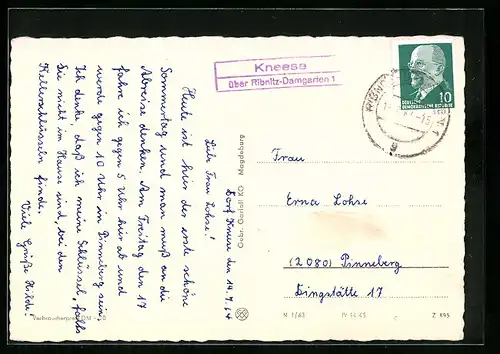 Kneese
über Ribnitz-Damgarten 1
10
DEUTSCHE
DEMOKRATISCHE REPUBLIK
Dorf Kneese den 14.7.64
Liebe Frau Lohse!
Heute ist hier der erste schöne
Sommertag und man muß an die
Abreise denken. Am Freitag den 17
fahre ich gegen 5 Uhr hier ab und
werde gegen 10 Uhr in Pinneberg sein.
Ich denke daß ich meine Schlüssel, falls
Sie nicht im Hause sind, bei den
Kellerschlüsseln finde.
Viele Grüße Hilde!
Gebr. Garloff KG Magdeburg
Frau
Erna Lohse
(2080) Pinneberg
Dingstätte 17
Verbraucherpreis DM
N 1/63
Z 895